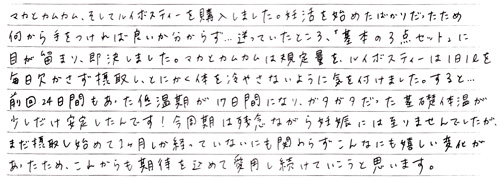 マカとカムカム、そしてルイボスティーを購入しました。妊活を始めたばかりだったため
何から手をつければ良いか分からず…迷っていたところ、「基本の3点セット」に
目が留まり、即決しました。マカとカムカムは規定量を、ルイボスティーは1日1ℓを
毎日欠かさず摂取し、とにかく体を冷やさないように気を付けました。すると…
前回24日間もあった低温期が17日間になり、ガタガタだった基礎体温が
少しだけ安定したんです!今回期は残念ながら妊娠には至りませんでしたが、
まだ摂取し始めて1ヶ月しか経っていないにも関わらずこんなにも嬉しい変化が
あったため、これからも期待を込めて愛用し続けていこうと思います。